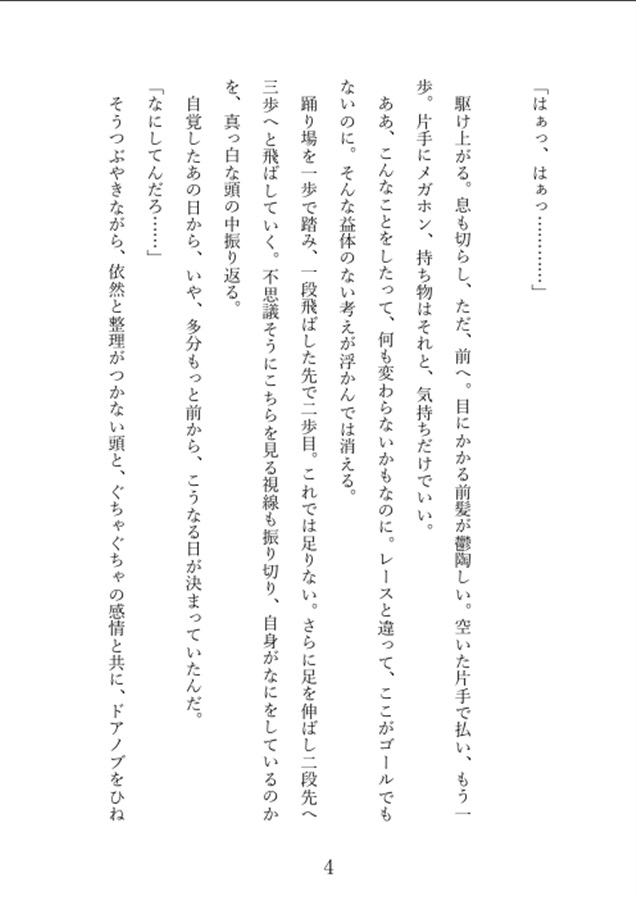 「はぁっ、はぁっ…………」
駆け上がる。息も切らし、ただ、前へ。目にかかる前髪が鬱陶しい。空いた片手で払い、もう一
歩。片手にメガホン、持ち物はそれと、気持ちだけでいい。
ああ、こんなことをしたって、何も変わらないかもなのに。レースと違って、ここがゴールでも
ないのに。そんな益体のない考えが浮かんでは消える。
踊り場を一歩で踏み、一段飛ばした先で二歩目。これでは足りない。さらに足を伸ばし二段先へ
三歩へと飛ばしていく。不思議そうにこちらを見る視線も振り切り、自身がなにをしているのか
を、真っ白な頭の中振り返る。
自覚したあの日から、いや、多分もっと前から、こうなる日が決まっていたんだ。
「なにしてんだろ……」
そうつぶやきながら、依然と整理がつかない頭と、ぐちゃぐちゃの感情と共に、ドアノブをひね
4